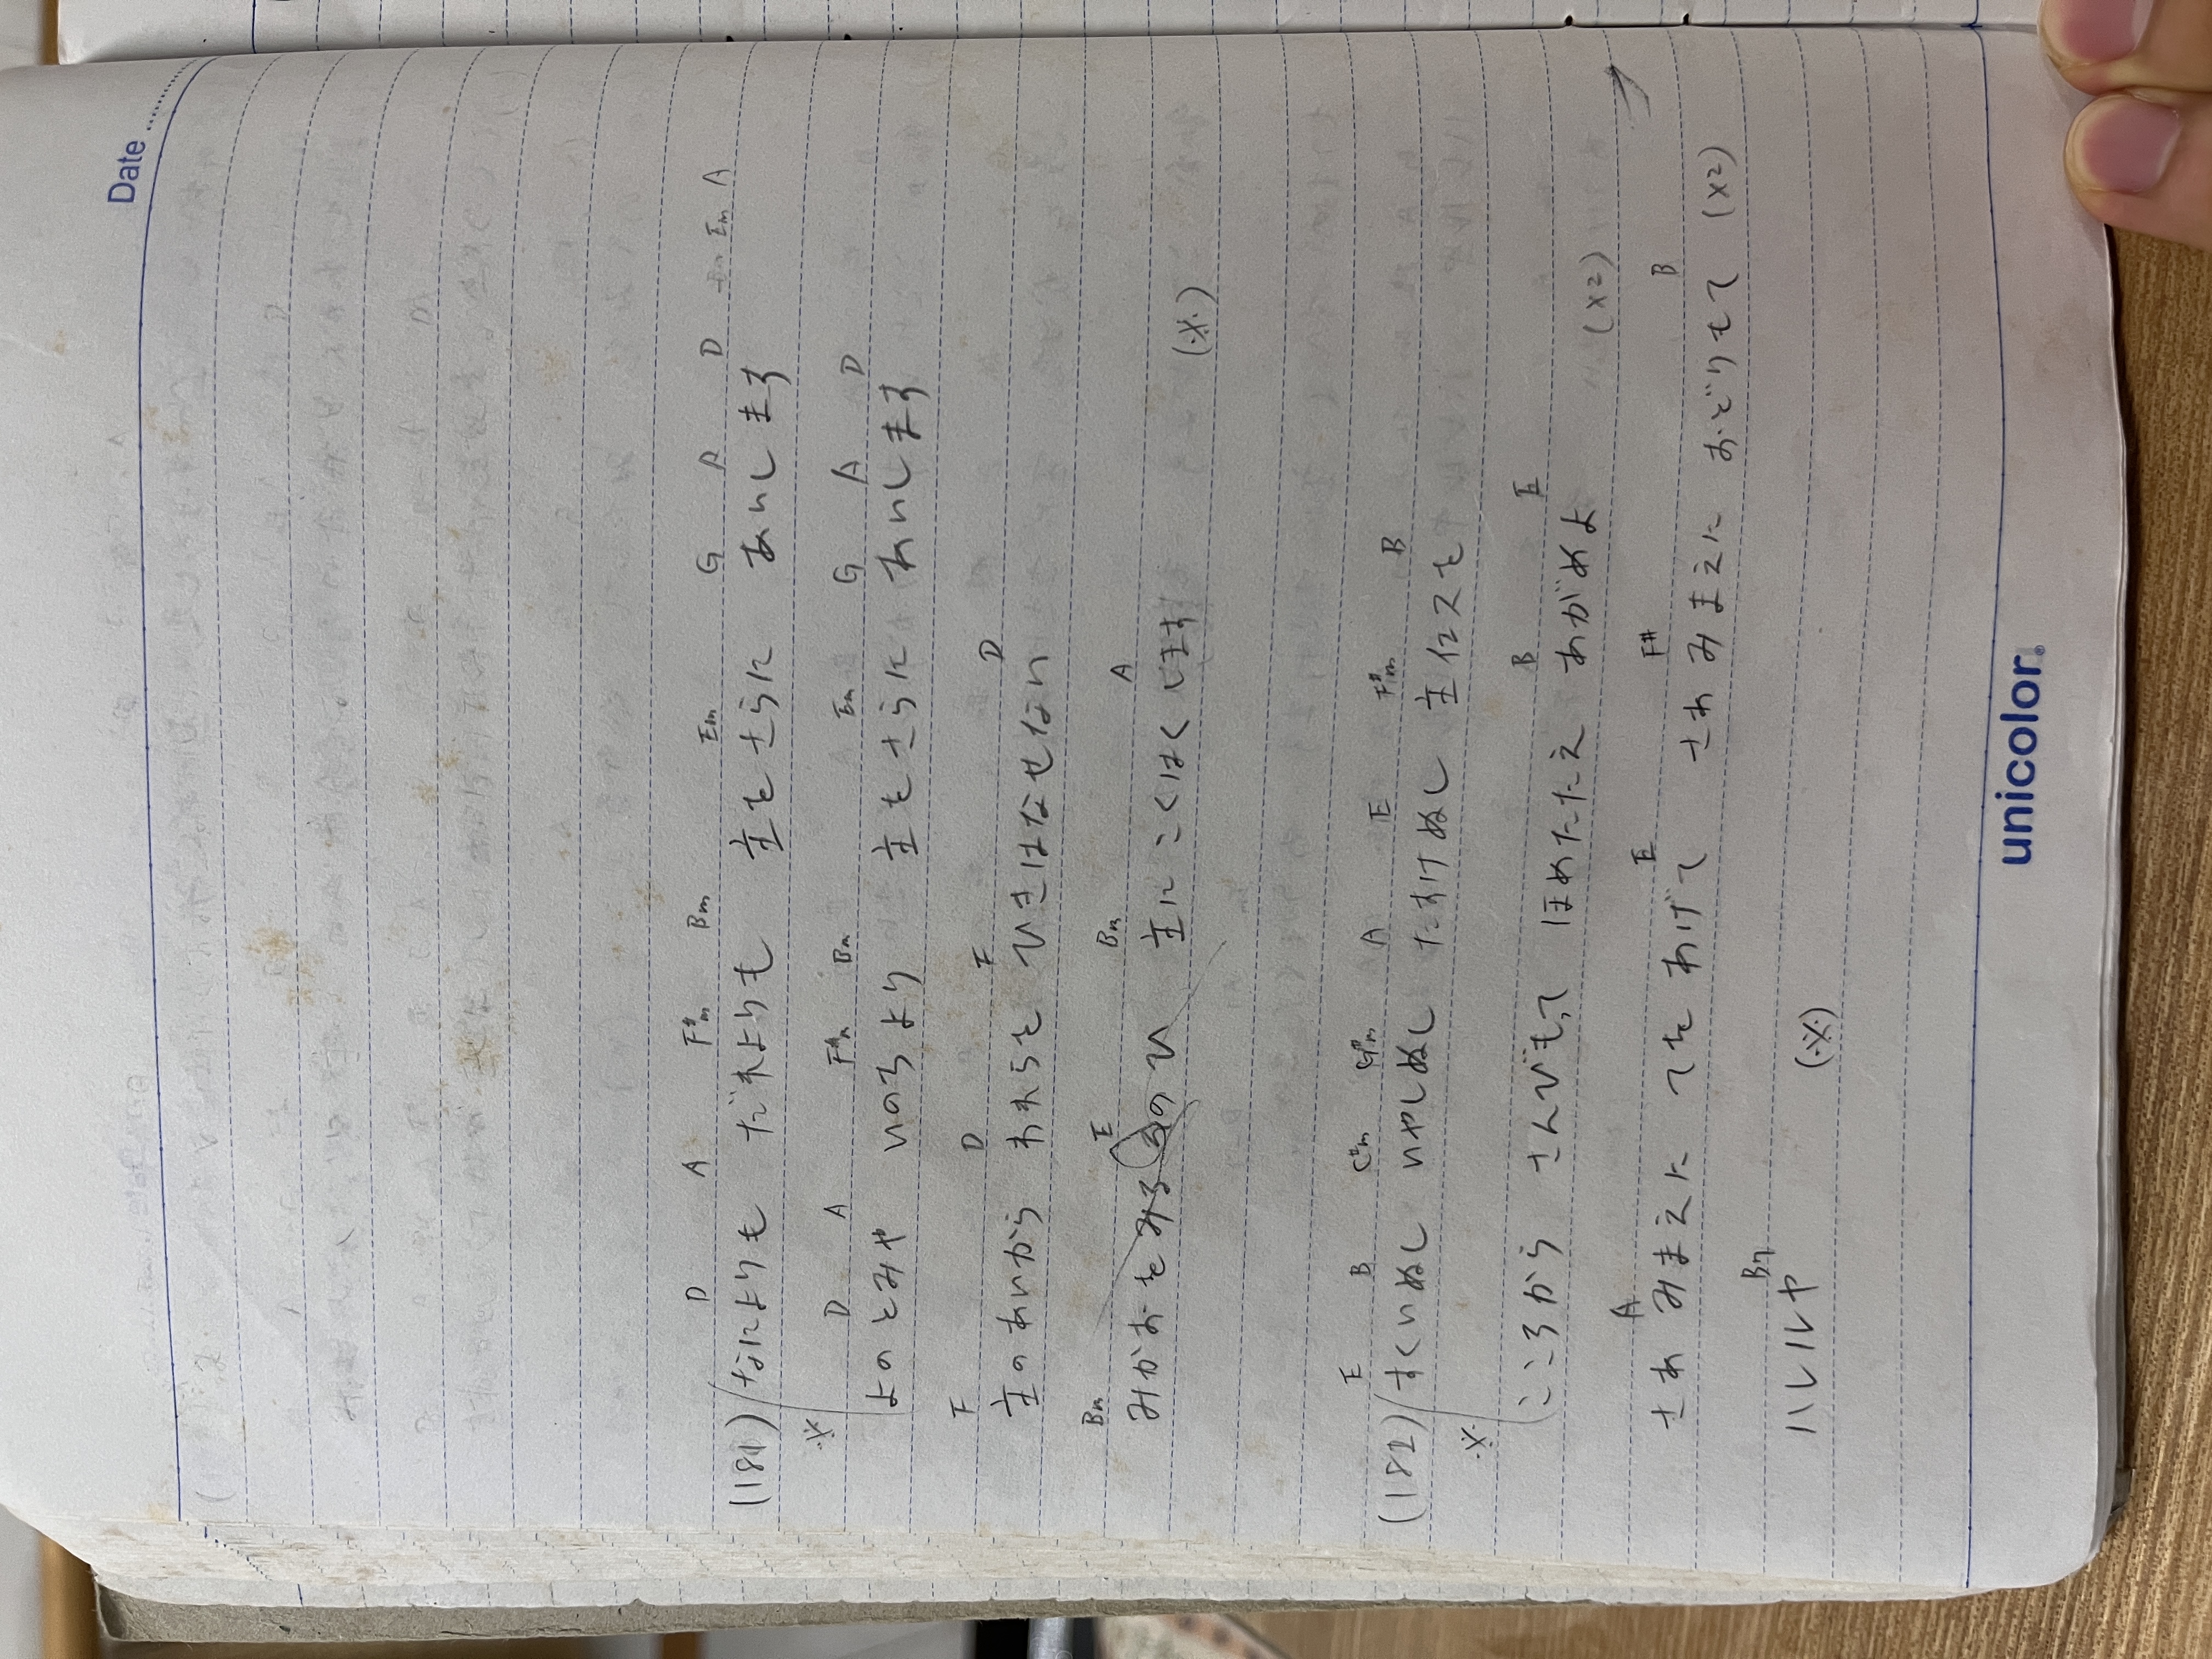 Date
D A F#m Bm Em G A D Em A
(181) なによりも だれよりも 主をさらに あいします
D A F#m Bm Em G A D
※ よのとみや いのちより 主をさらに あいします
F D F D
主のあいから われらを ひきはなせない
Bm E Bm A
みかおをみる そのひ 主にこくはくします (※)
E B C#m G#m A E F#m B
(182) すくいぬし いやしぬし たすけぬし 主イエスを
B E
※ こころから さんびもって ほめたたえ あがめよ (x2)
A E F# B
さあ みまえに てをあげて さあ みまえに おどりもて (x2)
B7
ハレルヤ (※)
unicolor